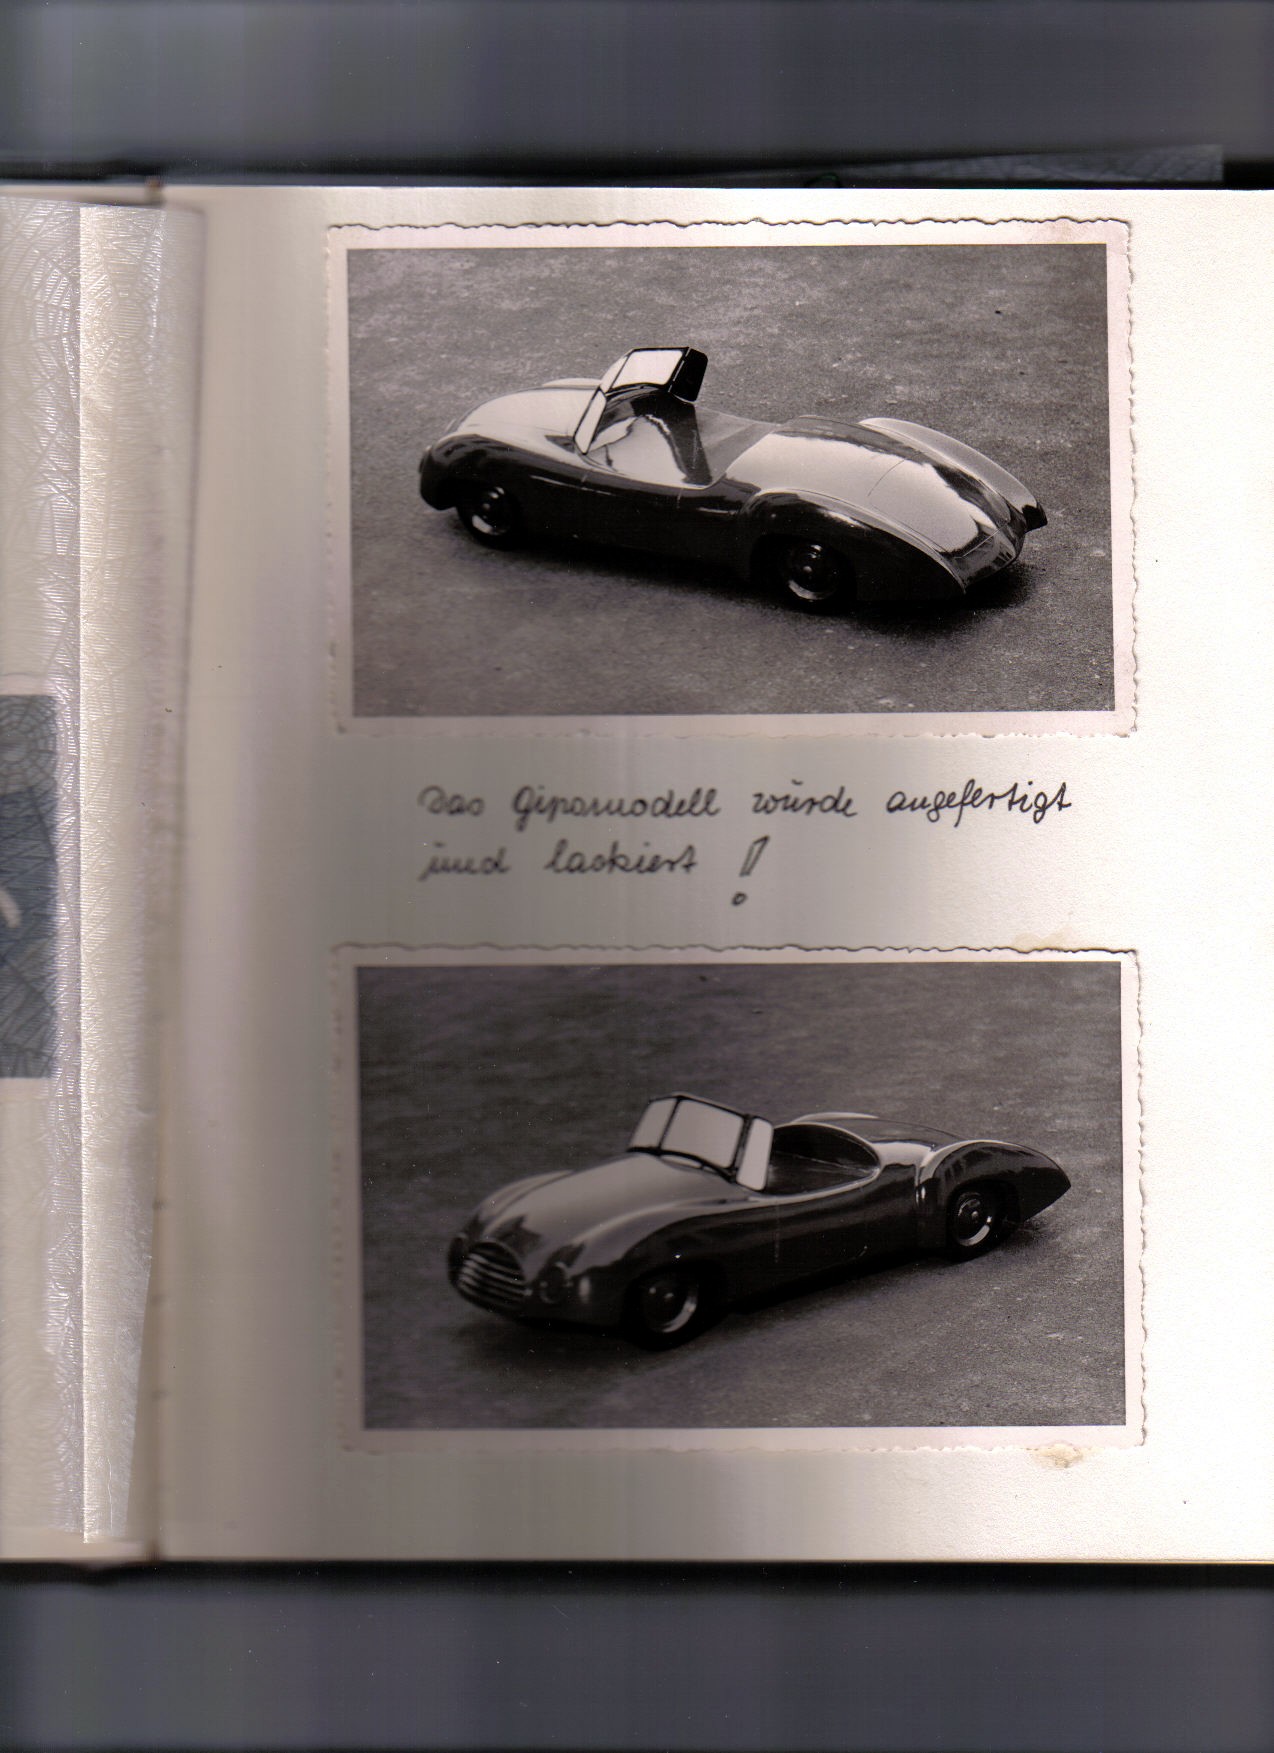 Das Gipsmodell wurde angefertigt
und lackiert !